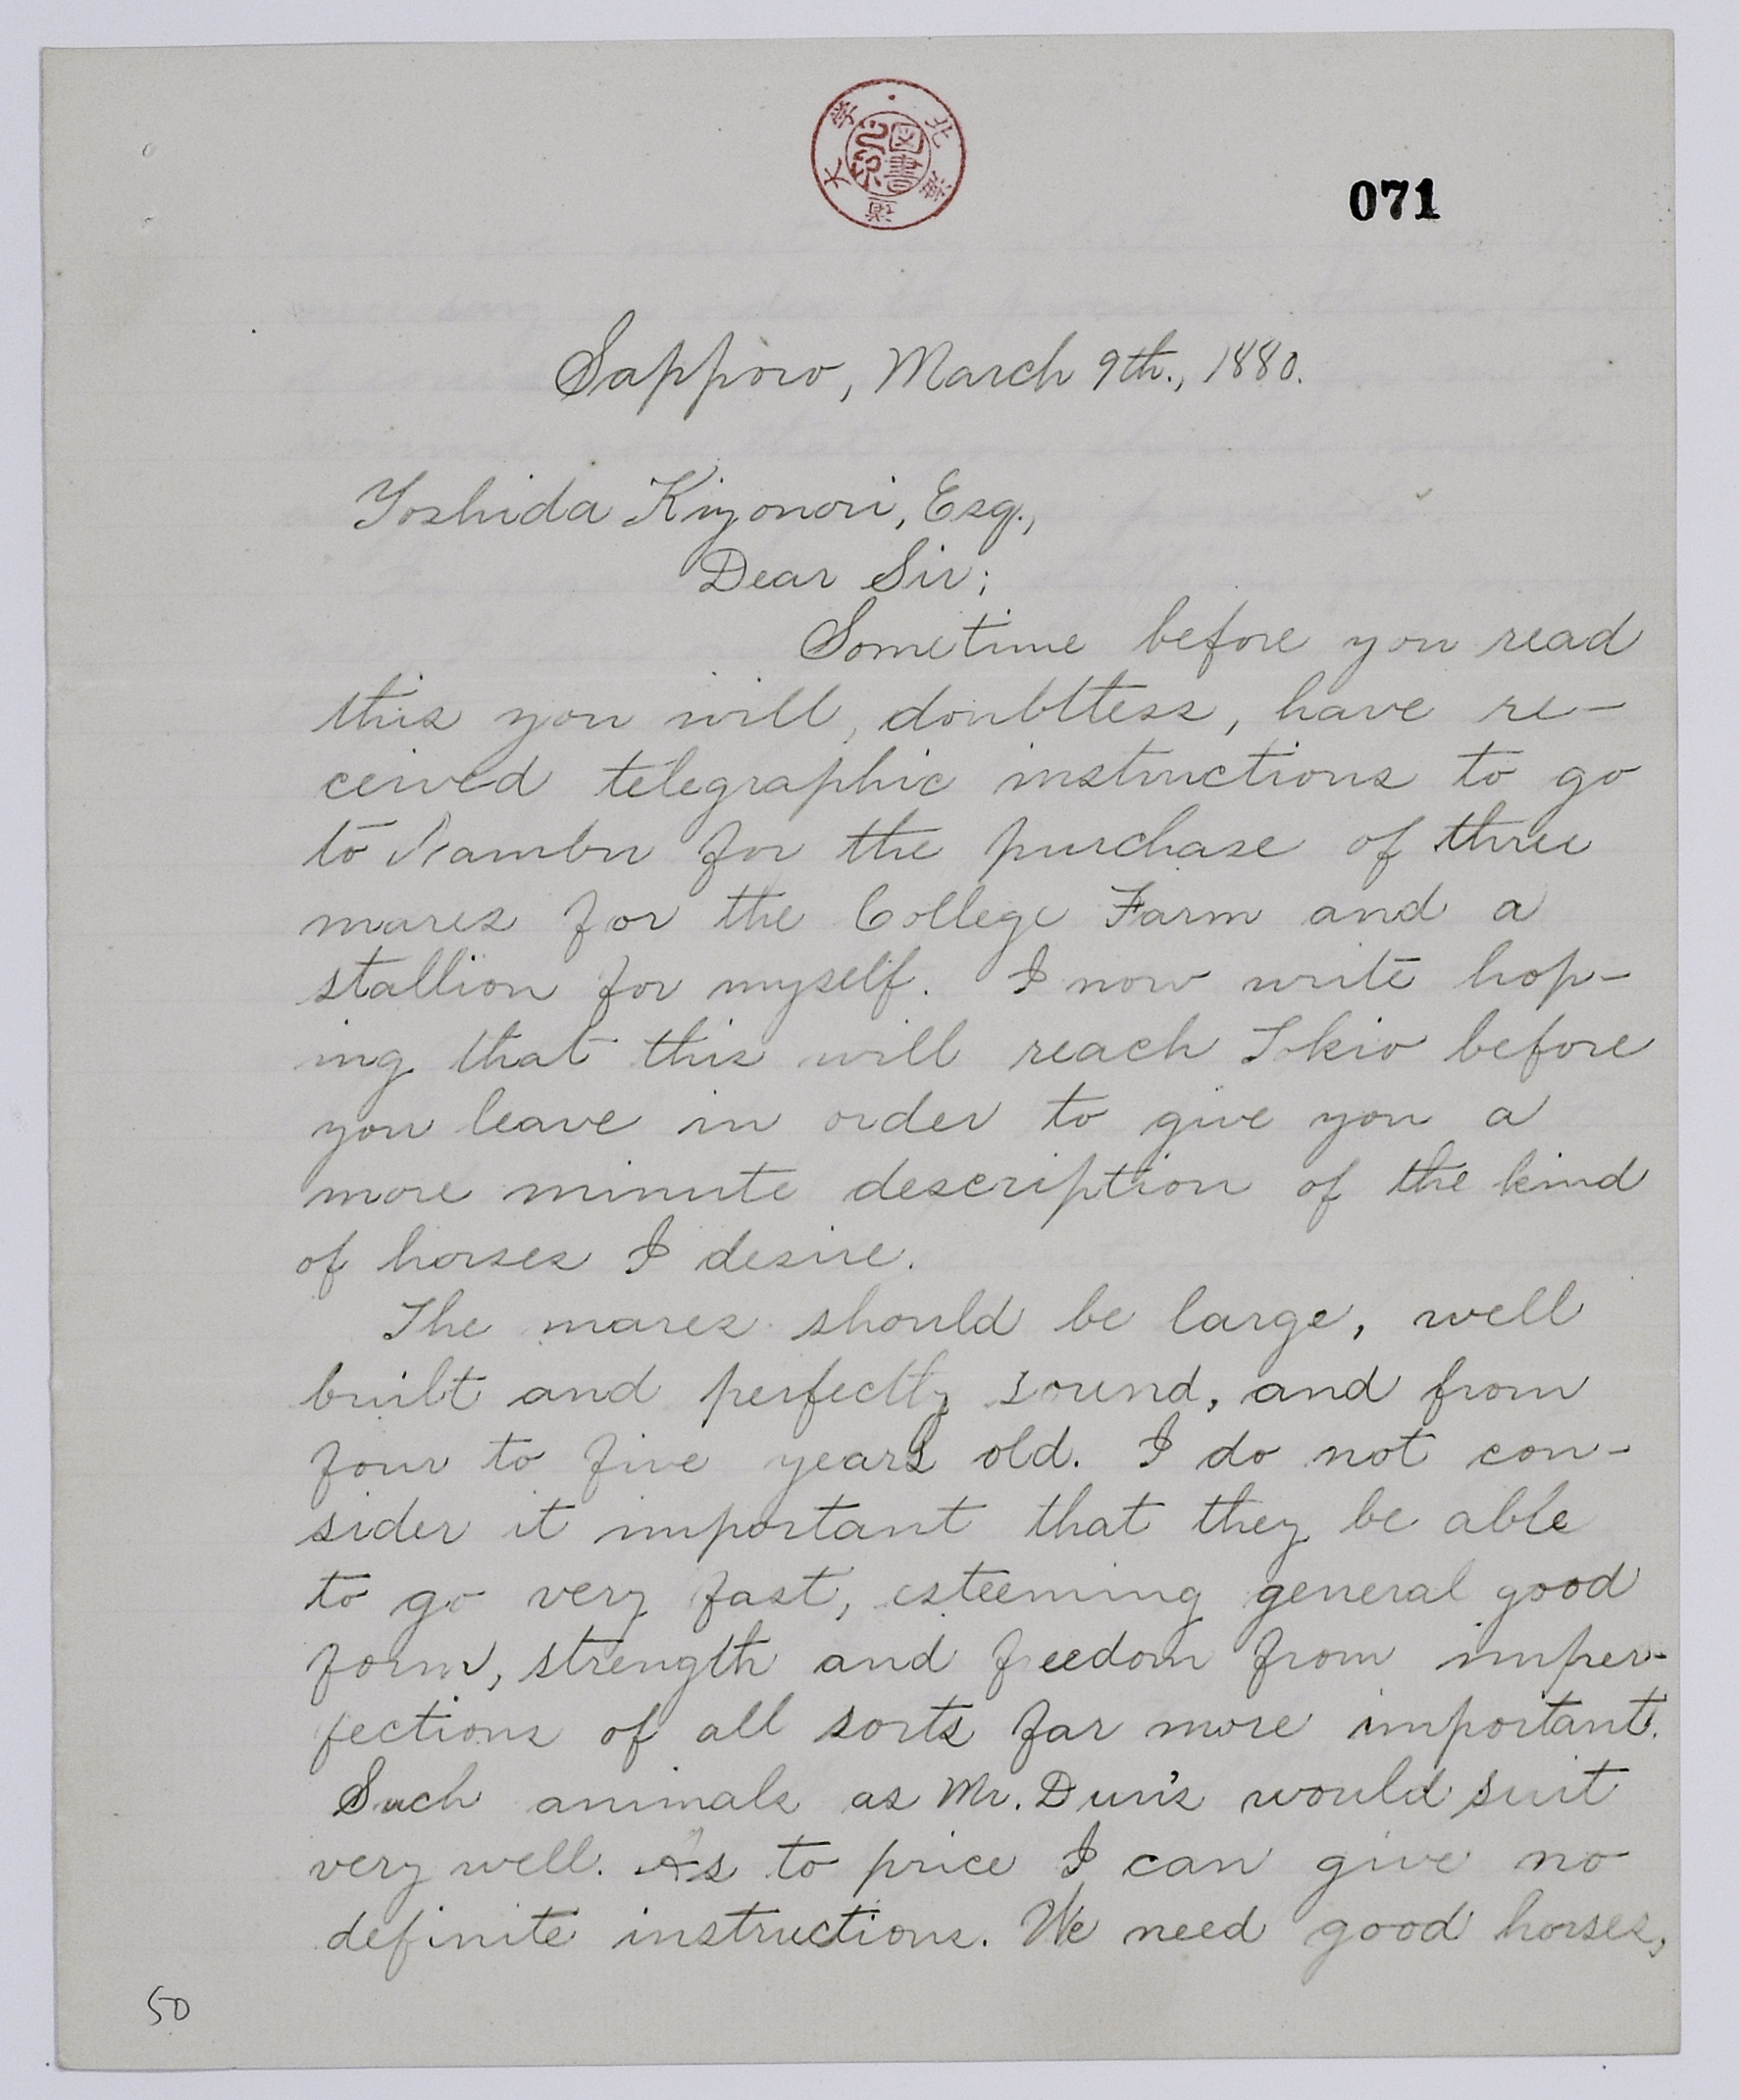 北海道大学
図書之印
071
Sapporo, March 9th., 1880.
Yoshida Kiyonori, Esq.,
Dear Sir;
Sometime before you read
this you will, doubtless, have re-
ceived telegraphic instructions to go
to Nambu for the purchase of three
mares for the College Farm and a
stallion for myself. I now write hop-
ing that this will reach Tokio before
you leave in order to give you a
more minute description of the kind
of horses I desire.
The mares should be large, well
built and perfectly sound, and from
four to five years old. I do not con-
sider it important that they be able
to go very fast, esteeming general good
form, strength and freedom from imper-
fections of all sorts far more important.
Such animals as Mr. Dun's would suit
very well. As to price I can give no
definite instructions. We need good horses,
50